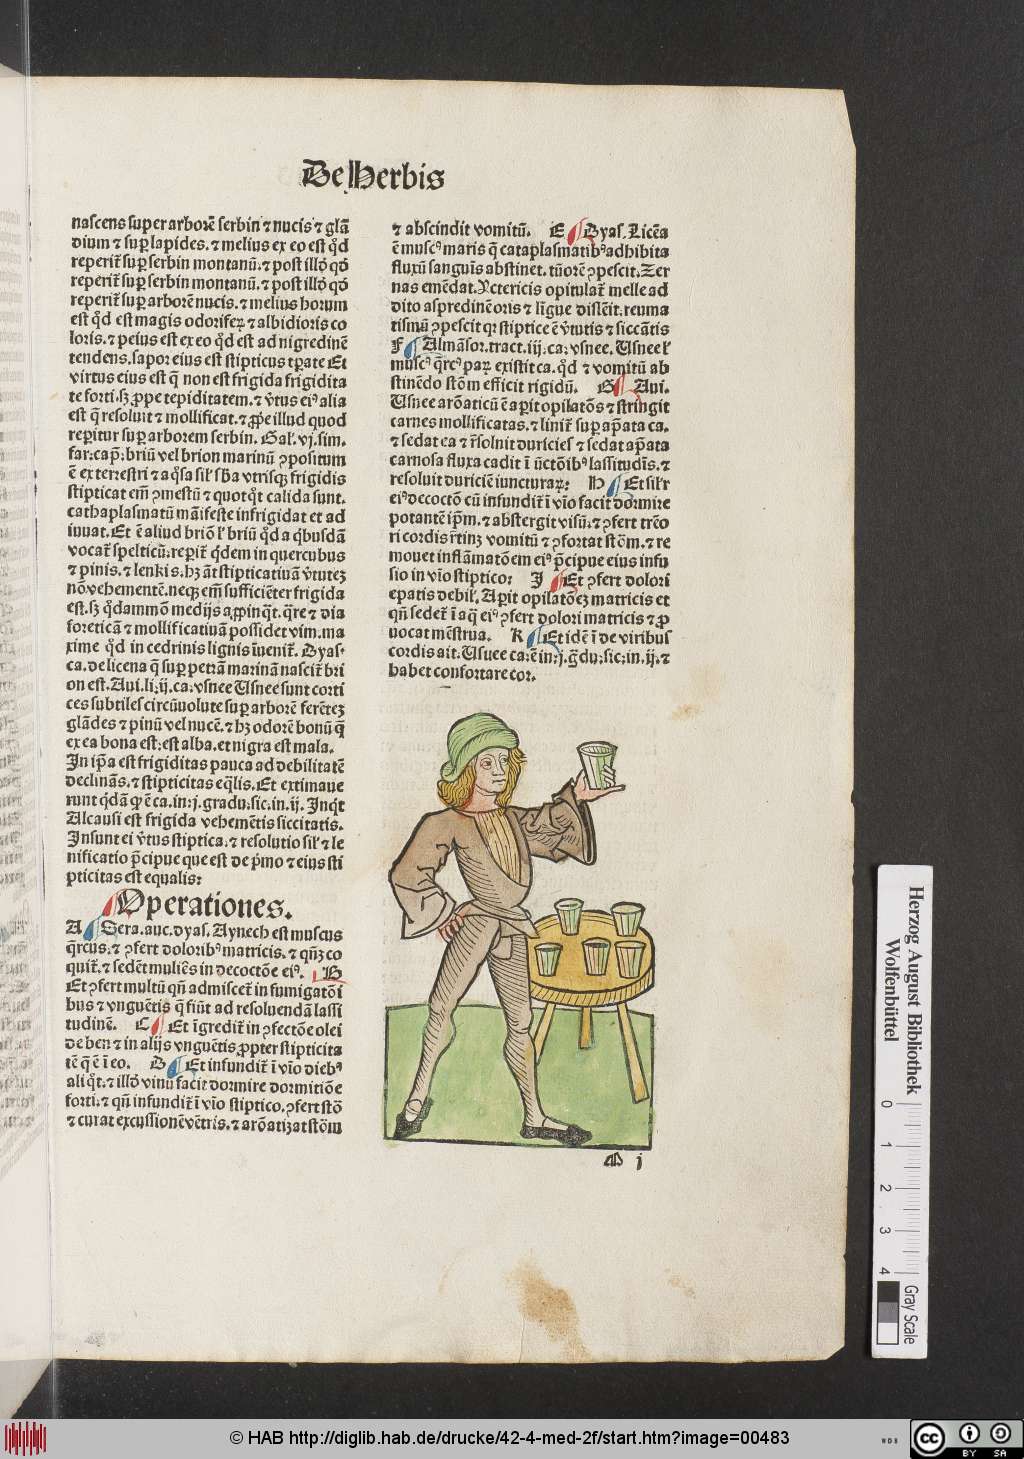 De Herbis
nascens super arborē serbin ⁊ nucis ⁊ glā
dium ⁊ suꝑ lapides. ⁊ melius ex eo est qd̓
reperit̄ suꝑ serbin montanū. ⁊ post illd̓ qd̓
reperit̄ suꝑ serbin montanū. ⁊ post illd̓ qd̓
reperit̄ suꝑ arborē nucis. ⁊ melius horum
est qd̓ est magis odorifeꝝ ⁊ albidioris co
loris. ⁊ peius est ex eo qd̓ est ad nigredinē
tendens. sapor eius est stipticus tꝑate Et
virtus eius est q̄ non est frigida frigidita
te forti. sꝫ ꝓpe tepiditatem. ⁊ v̓tus eiꝰ alia
est q̄ resoluit ⁊ mollificat. ⁊ ꝓpe illud quod
reꝑitur suꝑ arborem serbin. Gal. vj. sim.
far: cap̄: briū vel brion marinū ꝯpositum
ē ex terrestri ⁊ aq̄sa sil̓ sb̓a vtrisqꝫ frigidis
stipticat em̄ ꝯmestū ⁊ quotq̓t calida sunt.
cathaplasmatū māifeste infrigidat et ad
iuuat. Et ē aliud briō l̓ briū qd̓ a qb̓usdā
vocat̄ spelticū: reꝑit̄ qd̓em in quercubus
⁊ pinis. ⁊ lenkis. hꝫ āt stipticatiuā v̓tuteꝫ
nō vehementē. neqꝫ em̄ sufficiēter frigida
est. sꝫ qd̓ammō medijs aꝓpinq̄t. q̄re ⁊ dia
foreticā ⁊ mollificatiuā possidet vim. ma
xime qd̓ in cedrinis lignis īuenit̄. Dyas.
ca. de licena q̄ suꝑ petrā marinā nascit̄ bri
on est. Aui. li. ij. ca. vsnee Usnee sunt corti
ces subtiles circūuolute suꝑ arborē ferēteꝫ
glādes ⁊ pinū vel nucē. ⁊ hꝫ odorē bonū q̄
ex ea bona est: est alba. et nigra est mala.
In ip̄a est frigiditas pauca ad debilitatē
declinās. ⁊ stipticitas eq̄lis. Et extimaue
runt qd̓ā qꝛ ē ca. in. j. gradu. sic. in. ij. Inq̄t
Alcausi est frigida vehemētis siccitatis.
Insunt ei v̓tus stiptica: ⁊ resolutio sil̓ ⁊ le
nificatio p̄cipue que est de p̓mo ⁊ eius sti
pticitas est equalis:
Operationes.
A Sera. auc. dyas. Aynech est muscus
q̄rcus. ⁊ ꝯfert doloribꝰ matricis. ⁊ qn̄ꝫ co
quit̄. ⁊ sedēt muliēs in decoctōe eiꝰ. B
Et ꝯfert multū qn̄ admiscet̄ in fumigatōi
bus ⁊ vnguētis q̄ fiūt ad resoluendā lassi
tudinē. C Et īgredit̄ in ꝯfectōe olei
de ben ⁊ in alijs vnguētis ꝓpter stipticita
tē q̄ ē ī eo. D Et infundit̄ ī vīo diebꝰ
aliq̓t. ⁊ illd̓ vinū facit dormire dormitiōe
forti. ⁊ qn̄ infundit̄ ī vīo stiptico. ꝯfert stō
⁊ curat excussionē vētris. ⁊ arōatizat stōm
⁊ abscindit vomitū. E Dyas. Licēa
ē muscꝰ maris q̄ cataplasmatibꝰ adhibita
fluxū sanguīs abstinet. tūorē ꝯpescit. Zer
nas emēdat. Yctericis opitulat̄ melle ad
dito aspredinē oris ⁊ līgue dislēit. reuma
tismū ꝯpescit qꝛ stiptice ē v̓tutis ⁊ siccātis
F Almāsor. tract. iij. ca: vsnee. Usnee l̓
muscꝰ q̄rcꝰ paꝝ existit ca. qd̓ ⁊ vomitū ab
stinēdo stōm efficit rigidū. G Aui.
Usnee arōaticū ē aꝑit opilatōs ⁊ stringit
carnes mollificatas. ⁊ linit̄ suꝑ ap̄ata ca.
⁊ sedat ea ⁊ r̄soluit duricies ⁊ sedat ap̄ata
carnosa fluxa cadit ī ūctōibꝰ lassitudīs. ⁊
resoluit duriciē iuncturaꝝ: H Et sil̓r
eiꝰ decoctō cū infundit̄ ī vīo facit dormire
potantē ip̄m. ⁊ abstergit visū. ⁊ ꝯfert trēo
ri cordis r̄tinꝫ vomitū ⁊ ꝯfortat stōm. ⁊ re
mouet inflāmatōem eiꝰ p̄cipue eius infu
sio in vīo stiptico: I Et ꝯfert dolori
epatis debil̓. Aꝑit opilatōeꝫ matricis et
qn̄ sedet̄ ī aq̄ eiꝰ ꝯfert dolori matricis ⁊ ꝓ
uocat mēstrua. K Et idē ī de viribus
cordis ait. Usuee ca: ē in. j. gd̓u. sic. in. ij. ⁊
habet confortare cor.
M j
Herzog August Bibliothek
Wolfenbüttel
0 1 2 3 4
Gray Scale
© HAB http://diglib.hab.de/drucke/42-4-med-2f/start.htm?image=00483
WDB
cc BY SA